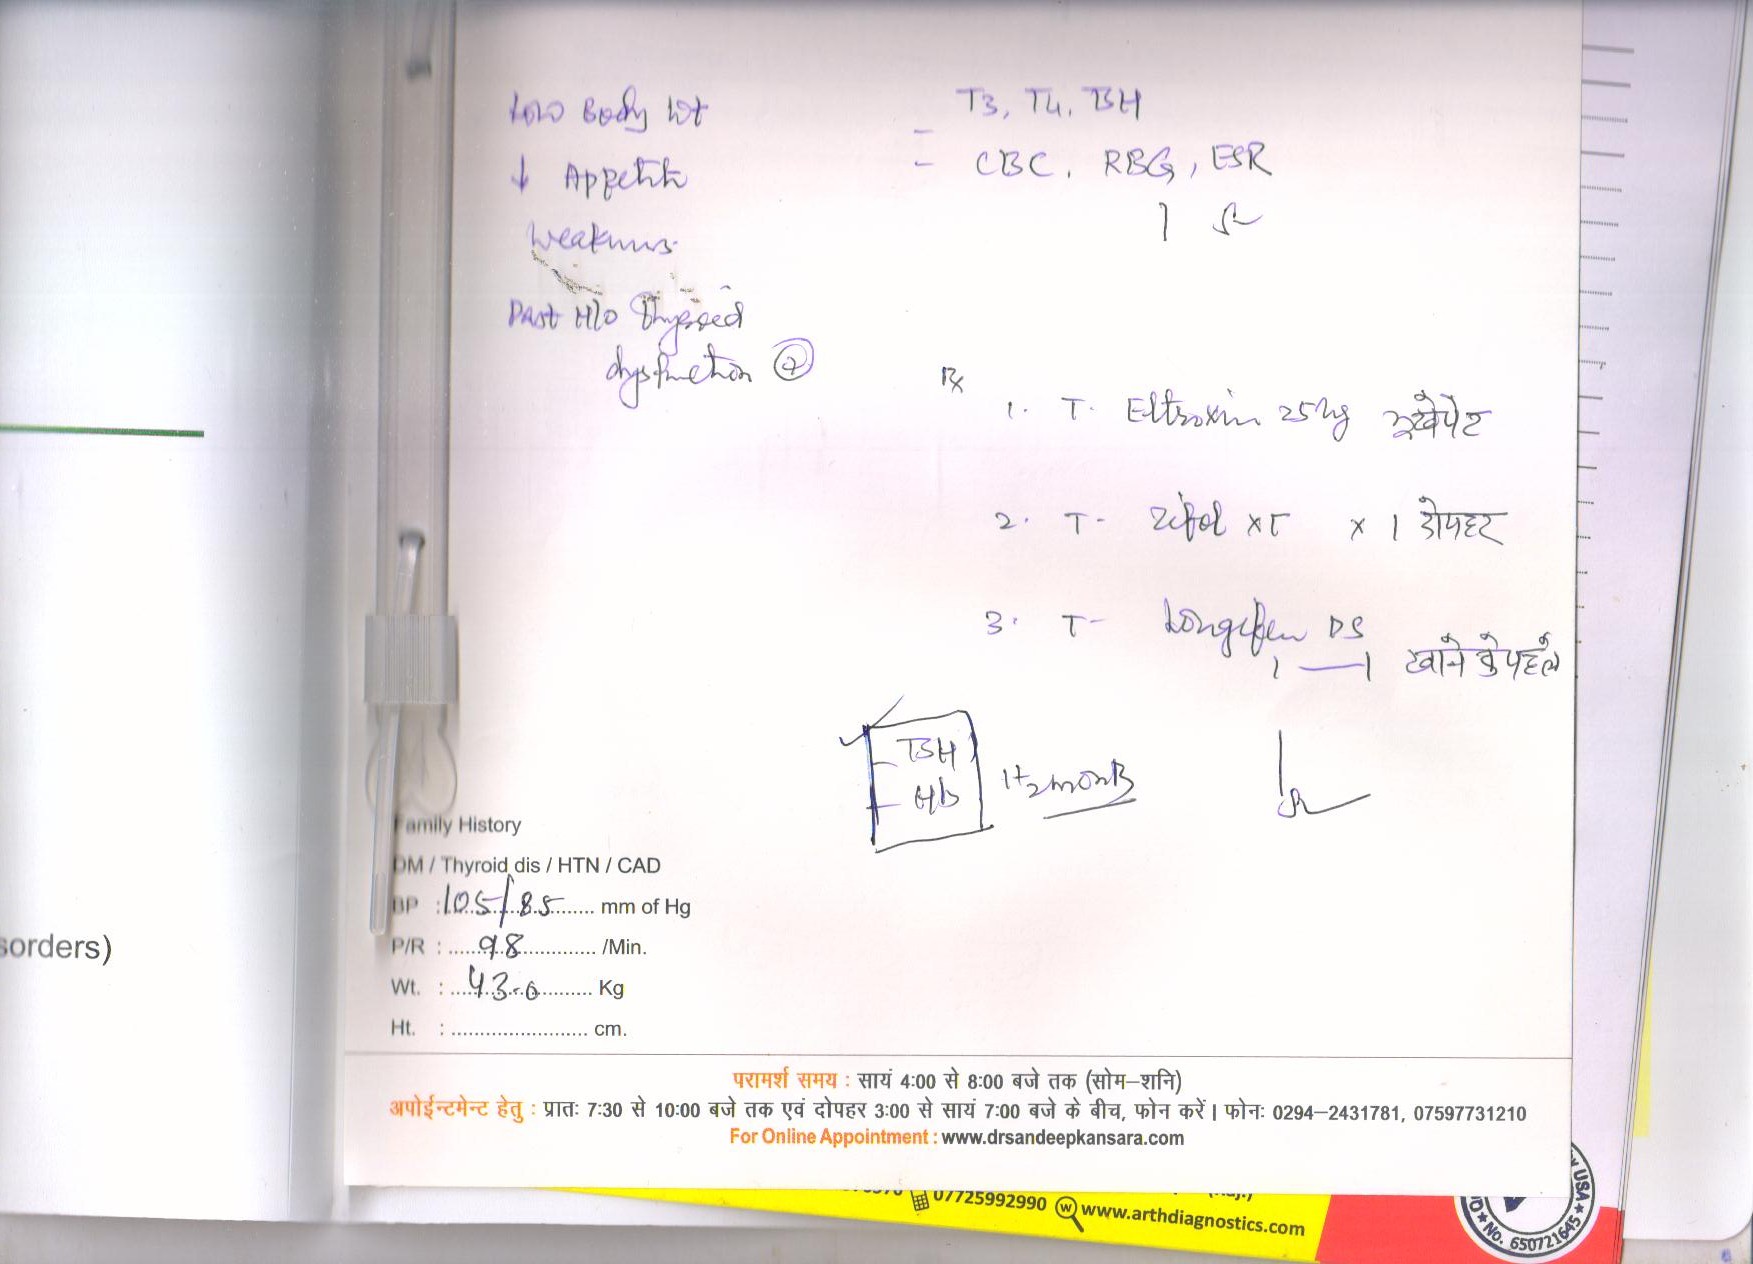 Low Body Wt
↓ Appetite
Weakness
Past H/O Thyroid
dysfunction
T3, T4, TSH
CBC, RBG, ESR
Rx
1. T. Eltroxin 25 भूखे पेट
2. T- Zifol XT x 1 दोपहर
3. T- Longifen DS
1 — 1 खाने के पहले
TSH
Hb
months
Family History
DM / Thyroid dis / HTN / CAD
BP : 105/85 mm of Hg
P/R : 98 /Min.
Wt. : 43.0 Kg
Ht. : cm.
sorders)
परामर्श समय : सायं 4:00 से 8:00 बजे तक (सोम–शनि)
अपोईन्टमेन्ट हेतु : प्रातः 7:30 से 10:00 बजे तक एवं दोपहर 3:00 से सायं 7:00 बजे के बीच, फोन करें। फोनः 0294–2431781, 07597731210
For Online Appointment : www.drsandeepkansara.com
07725992990 www.arthdiagnostics.com
USA
No. 650721645